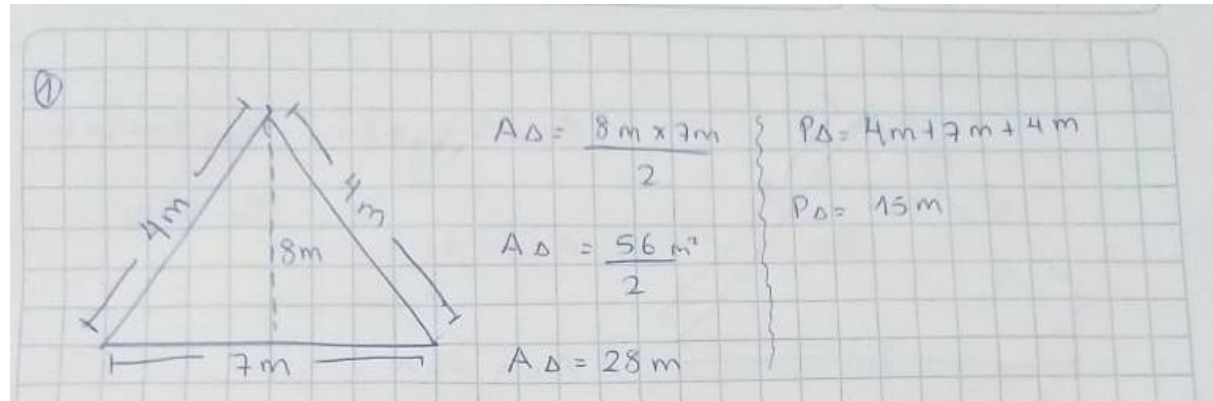 1
4m
4m
8m
7m
A△ = 8m x 7m
2
A△ = 56 m²
2
A△ = 28 m
P△ = 4m + 7m + 4m
P△ = 15m